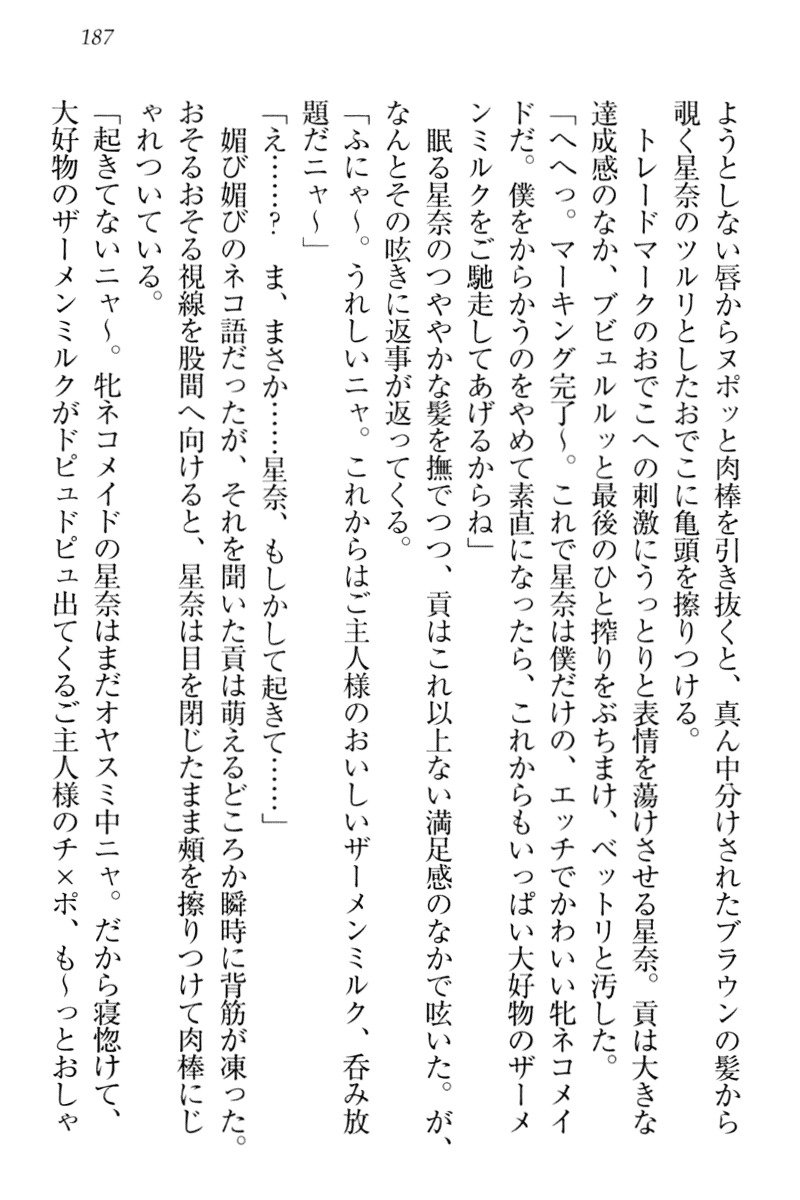 187
ようとしない唇からヌポッと肉棒を引き抜くと、真ん中分けされたブラウンの髪から
覗く星奈のツルリとしたおでこに亀頭を擦りつける。
　トレードマークのおでこへの刺激にうっとりと表情を蕩けさせる星奈。貢は大きな
達成感のなか、ブビュルルッと最後のひと搾りをぶちまけ、ベットリと汚した。
「へへっ。マーキング完了〜。これで星奈は僕だけの、エッチでかわいい牝ネコメイ
ドだ。僕をからかうのをやめて素直になったら、これからもいっぱい大好物のザーメ
ンミルクをご馳走してあげるからね」
　眠る星奈のつややかな髪を撫でつつ、貢はこれ以上ない満足感のなかで呟いた。が、
なんとその呟きに返事が返ってくる。
「ふにゃ〜。うれしいニャ。これからはご主人様のおいしいザーメンミルク、呑み放
題だニャ〜」
「え……？　ま、まさか……星奈、もしかして起きて……」
　媚び媚びのネコ語だったが、それを聞いた貢は萌えるどころか瞬時に背筋が凍った。
おそるおそる視線を股間へ向けると、星奈は目を閉じたまま頰を擦りつけて肉棒にじ
ゃれついている。
「起きてないニャ〜。牝ネコメイドの星奈はまだオヤスミ中ニャ。だから寝惚けて、
大好物のザーメンミルクがドピュドピュ出てくるご主人様のチ×ポ、も〜っとおしゃ